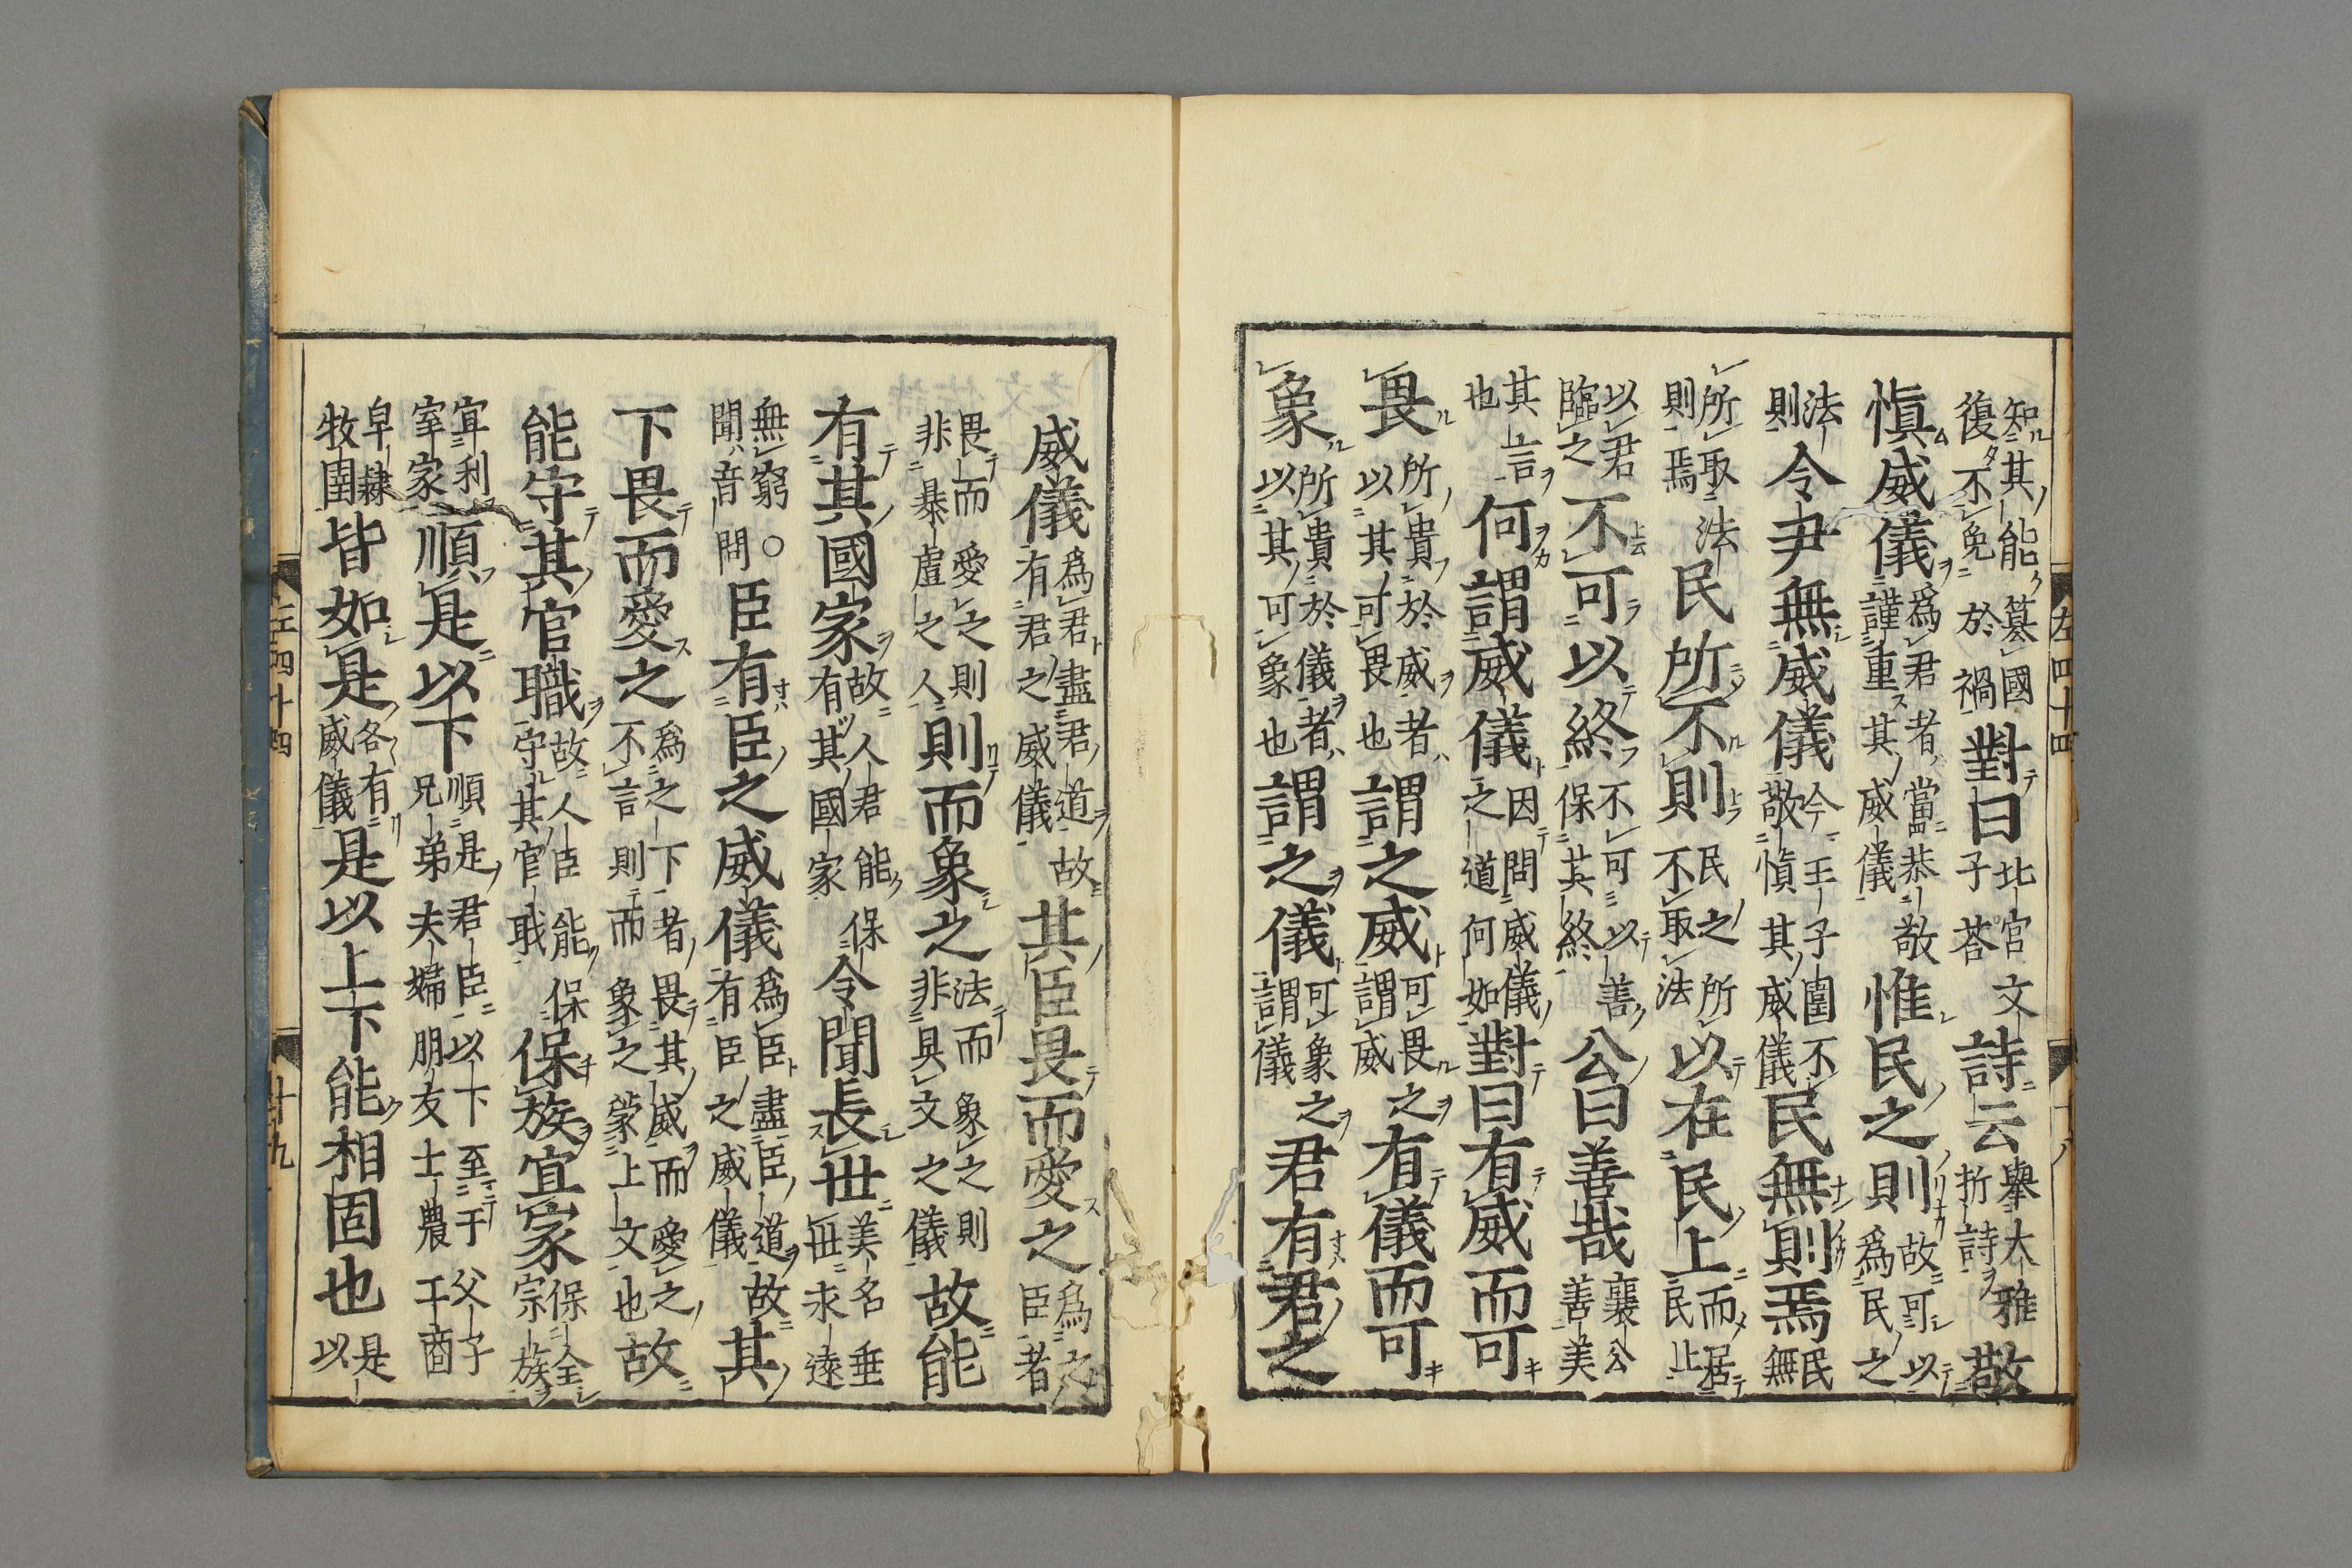 左四十四　十八
知其能簒國復不免於禍對曰北宮文子荅詩云舉大雅折詩敬
愼威儀爲君者當恭敬謹重其威儀惟民之則故可以爲民之
法則令尹無威儀今王子圍不敬愼其威儀民無則焉民無
所取法則焉民所不則民之所不取法以在民上而居民上
以君臨之不可以終不可以善保其終公曰善哉襄公善美
其言也何謂威儀因問威儀之道何如對曰有威而可
畏所貴於威者以其可畏也謂之威可畏之謂威有儀而可
象所貴於儀者以其可象也謂之儀可象之謂儀君有君之
威儀爲君盡君道故有君之威儀其臣畏而愛之爲之臣者
畏而愛之則非暴虐之人則而象之法而象之則非具文之儀故能
有其國家故人君能保有其國家令聞長世美名垂世永遠
無窮○聞音問臣有臣之威儀爲臣盡臣道故有臣之威儀其
下畏而愛之爲之下者畏其威而愛之不言則而象之蒙上文也故
能守其官職故人臣能保守其官職保族宜家保全宗族
宜利室家順是以下順是君臣以下至于父子兄弟夫婦朋友士農工商
皁隸牧圉皆如是各有威儀是以上下能相固也是以
左四十四　十九